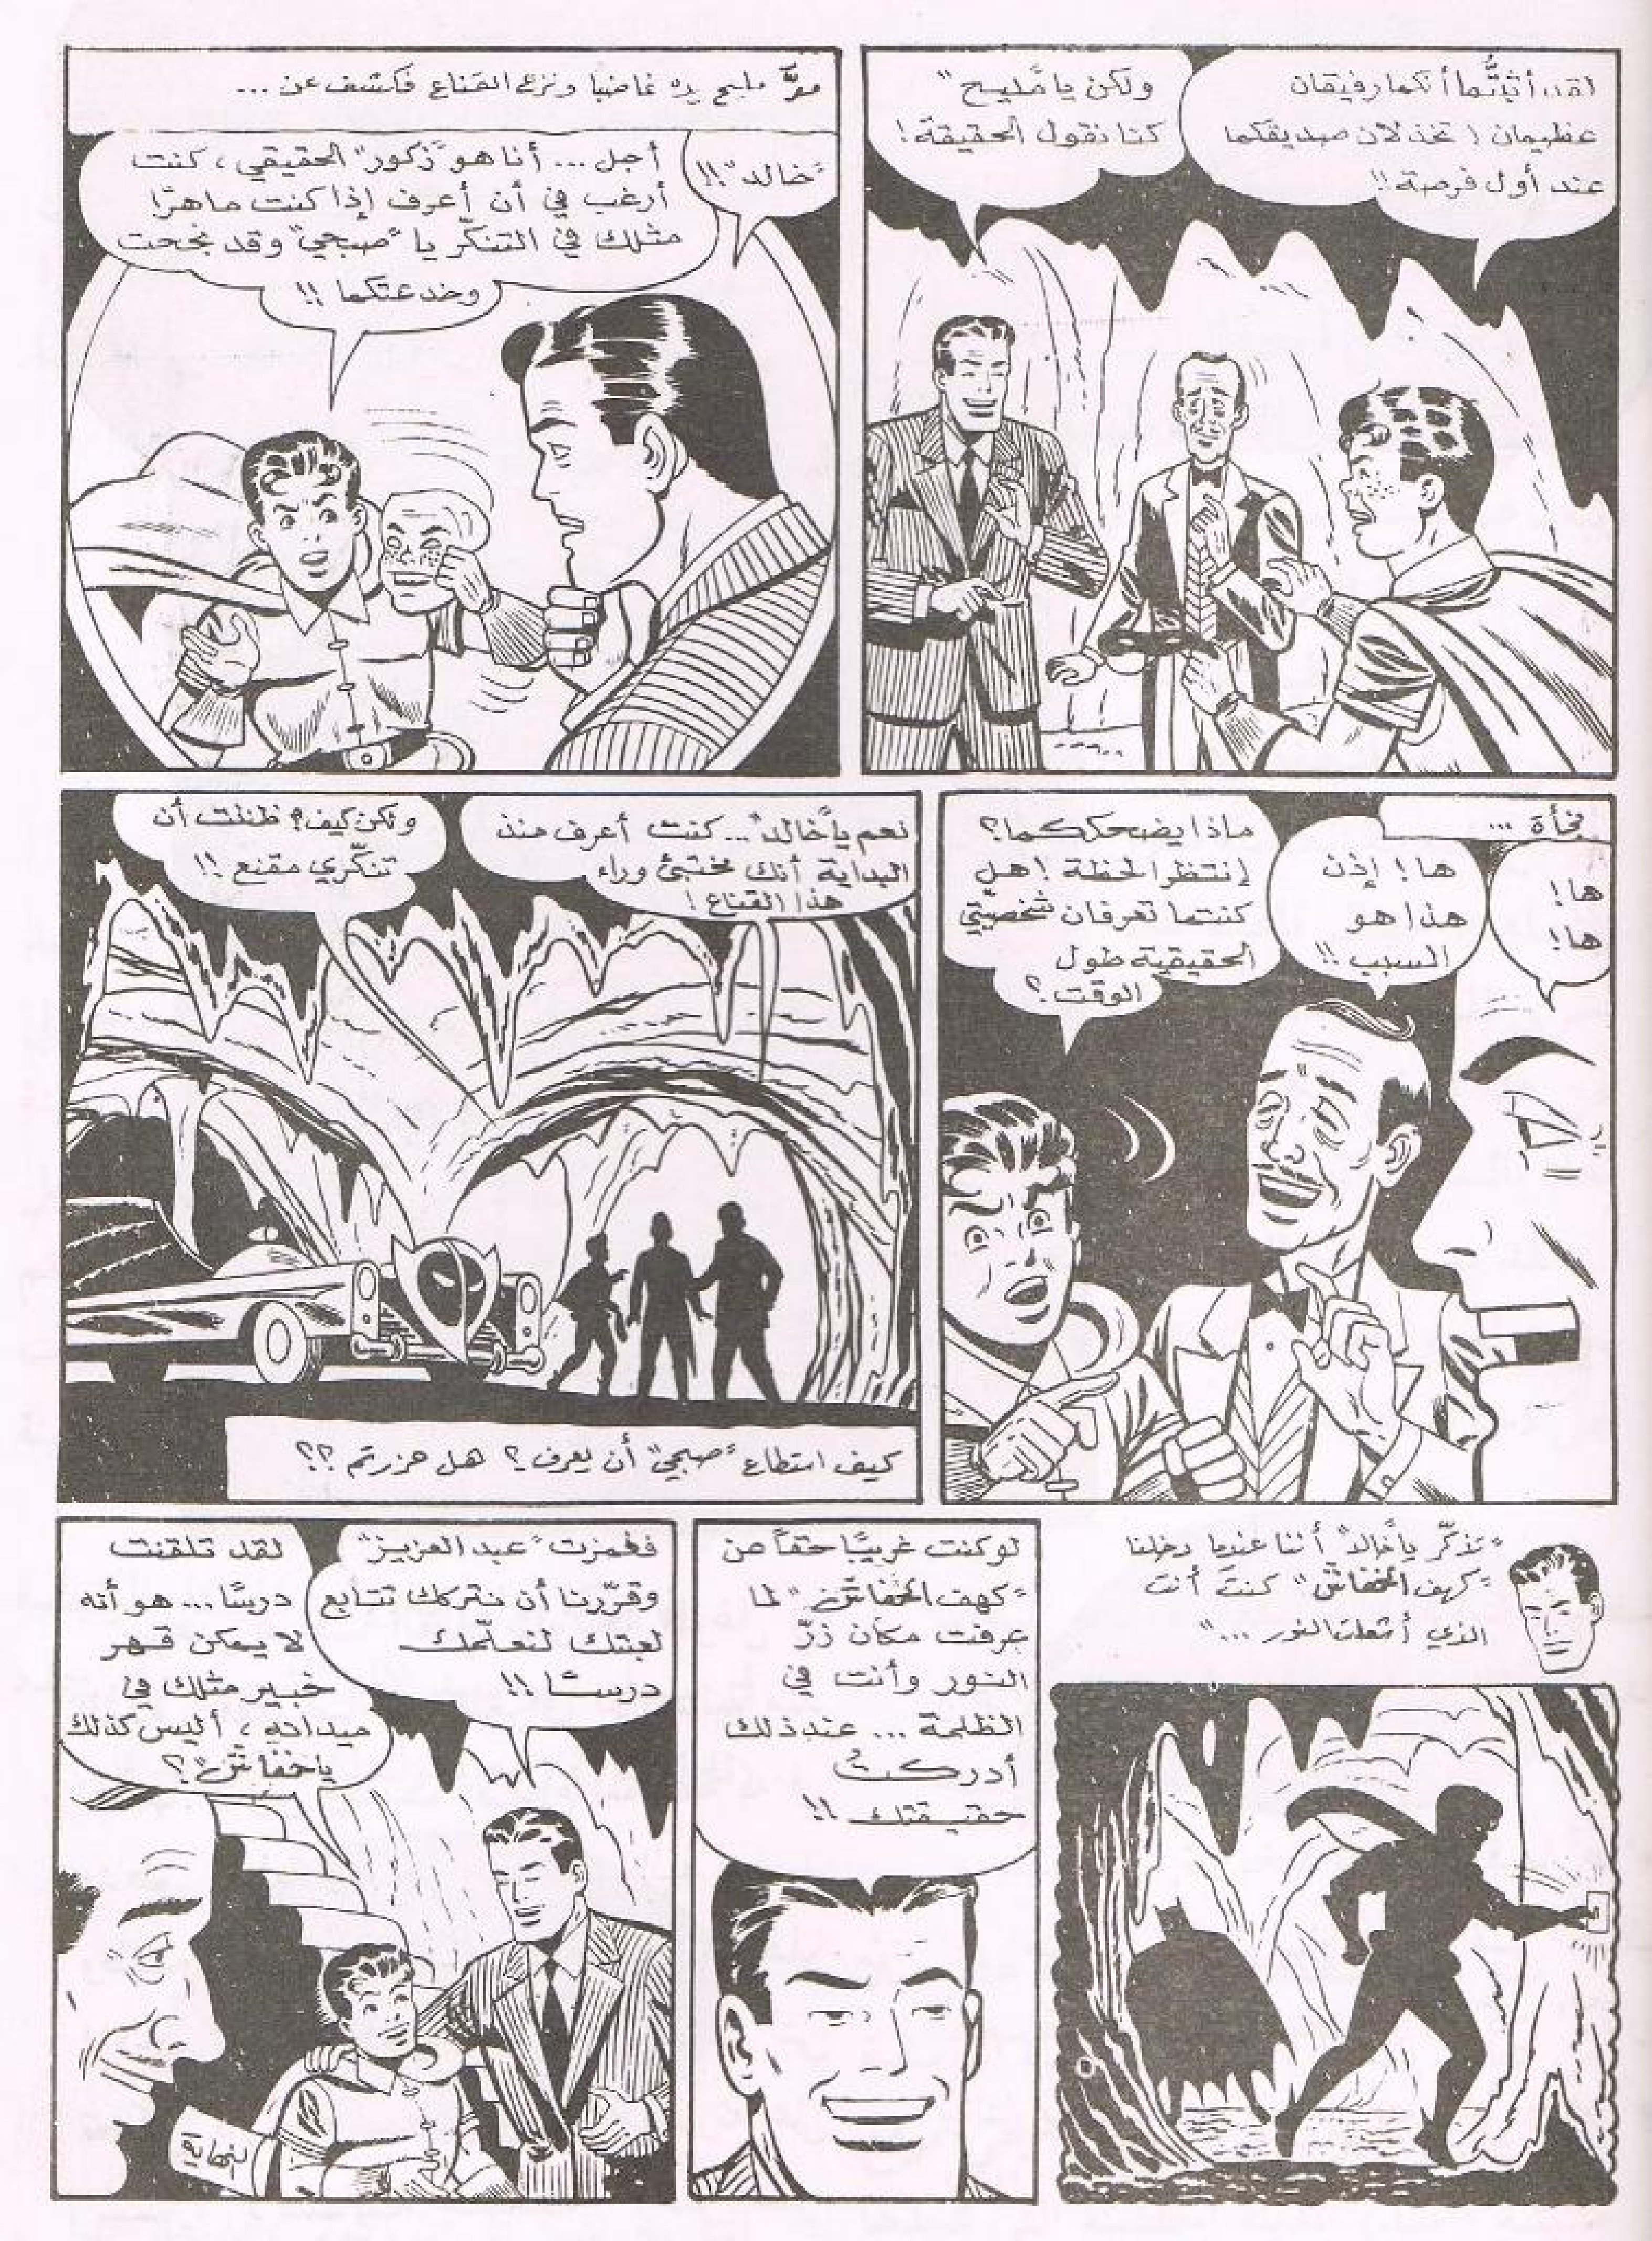 لقد أثبتُّما أنكما رفيقان
عظيمان ! تخذلان صديقكما
عند أول فرصة !!
ولكن يا "مليح"
كنا نقول الحقيقة !
مليح يده غاضبا ونزع القناع فكشف عن ...
"خالد" !!
أجل ... أنا هو "زكور" الحقيقي ، كنت
أرغب في أن أعرف إذا كنت ماهرًا
مثلك في التنكّر يا "صبحي" وقد نجحت
وخدعتكما !!
فجأة ...
ها !
ها !
ها ! إذن
هذا هو
السبب !!
ماذا يضحككما ؟
إنتظرا لحظة ! هل
كنتما تعرفان شخصيّتي
الحقيقية طول
الوقت ؟
نعم يا "خالد" ... كنت أعرف منذ
البداية أنك مختبئ وراء
هذا القناع !
ولكن كيف ؟ ظننت أن
تنكّري مقنع !!
كيف استطاع "صبحي" أن يعرف ؟ هل حزرتم ؟؟
"تذكّر يا خالد" أننا عندما دخلنا
"كهف الخفاش" كنتَ أنت
الذي أشعلت النور ..."
لو كنت غريبًا حقاً عن
"كهف الخفاش" لما
عرفت مكان زرّ
النور وأنت في
الظلمة ... عندذلك
أدركتُ
حقيقتك !!
فغمزت "عبد العزيز"
وقرّرنا أن نتركك تتابع
لعبتك لنعلّمك
درسًا !!
لقد تلقنت
درسًا ... هو أنه
لا يمكن قهر
خبير مثلك في
ميدانه ، أليس كذلك
يا "خفاش" ؟
النهاية